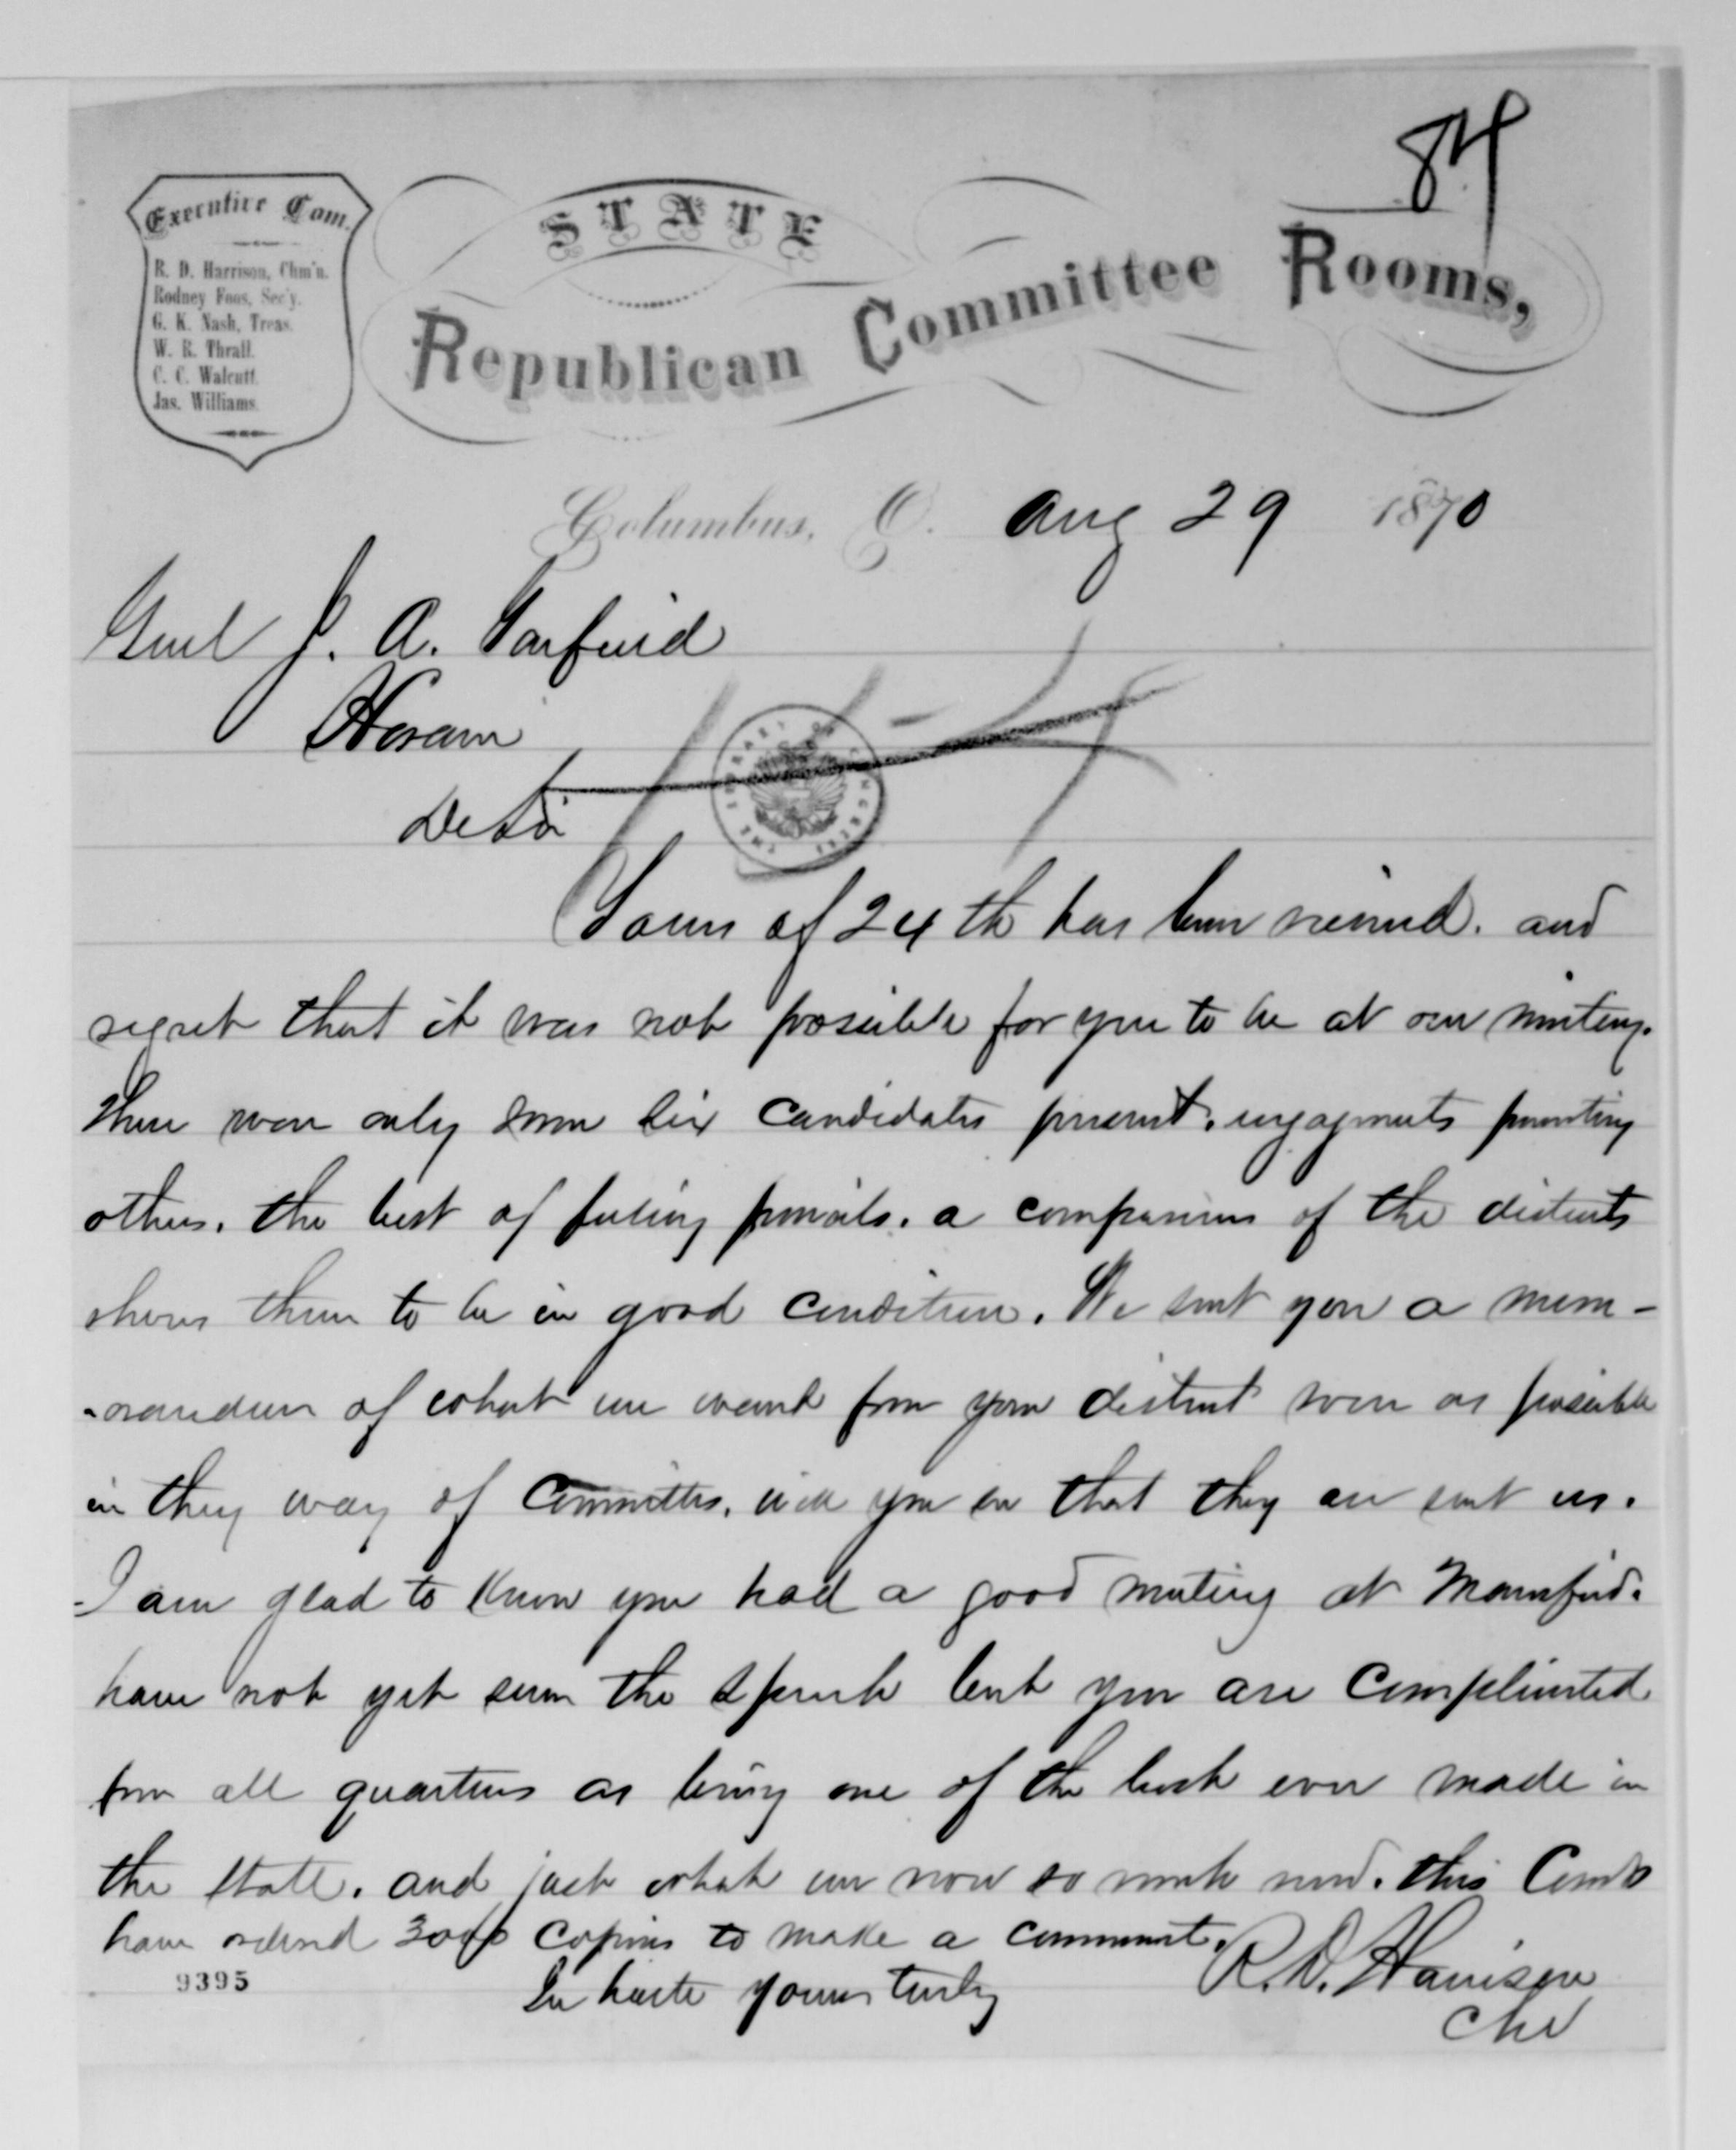 84
Executive Com.
R. D. Harrison, Chm'n.
Rodney Foos, Sec'y.
G. K. Nash, Treas.
W. R. Thrall.
C. C. Walcutt.
Jas. Williams.
STATE
Republican Committee Rooms,
Columbus, O. Aug 29 1870
Genl J. A. Garfield
Hiram
De Sir
Yours of 24th has been received. and
regret that it was not possible for you to be at our meeting.
there were only some six candidates present. engagements preventing
others. the best of feeling prevails. a comparison of the districts
shows them to be in good condition. We sent you a mem-
-orandum of what we want from your district soon as possible
in they way of Committes. will you see that they are sent us.
I am glad to know you had a good meeting at Mansfield.
have not yet seen the speech but you are complimented
from all quarters as being one of the best ever made in
the state. and just what we now so much need. this Comt
have ordered 3000 copies to make a commencement.
In haste yours truly R. D. Harrison
Chr
9395